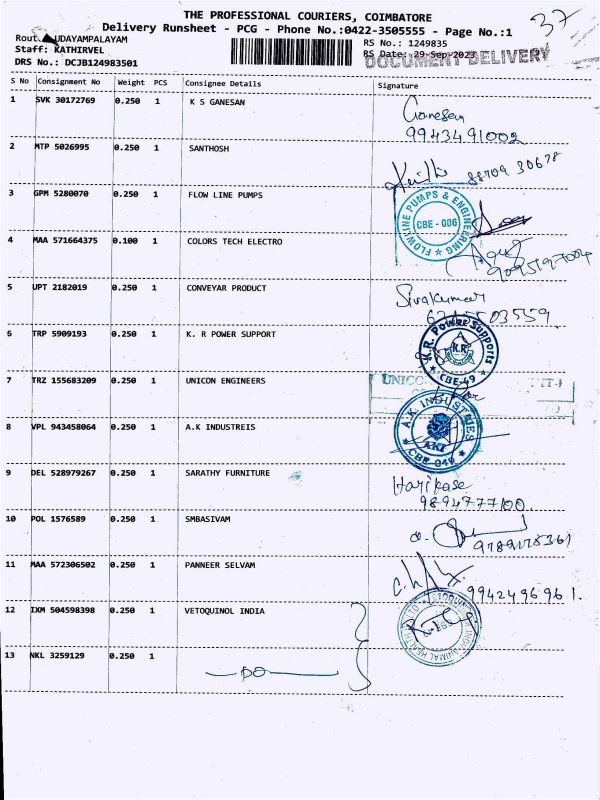 THE PROFESSIONAL COURIERS, COIMBATORE
37
Delivery Runsheet - PCG - Phone No.:0422-3505555 - Page No.:1
UDAYAMPALAYAM
RS No.: 1249835
Staff: KATHIRVEL
RS Date: 29-Sep-2023
DOCUMENT DELIVERY
DRS No.: DCJB124983501
S No Consignment No Weight PCS Consignee Details Signature
1 SVK 30172769 0.250 1 K S GANESAN
Ganesan
9943491002
2 MTP 5026995 0.250 1 SANTHOSH
88709 30678
3 GPM 5280070 0.250 1 FLOW LINE PUMPS
FLOWLINE PUMPS & ENGINEERING
CBE - 006
4 MAA 571664375 0.100 1 COLORS TECH ELECTRO
5 UPT 2182019 0.250 1 CONVEYAR PRODUCT
Sivakumar
6 TRP 5909193 0.250 1 K. R POWER SUPPORT
K.R. Power Supports
K.R
CBE-49
7 TRZ 155683209 0.250 1 UNICON ENGINEERS
8 VPL 943458064 0.250 1 A.K INDUSTREIS
A.K. INDUSTRIES
AKI
9 DEL 528979267 0.250 1 SARATHY FURNITURE
9894777100
10 POL 1576589 0.250 1 SMBASIVAM
11 MAA 572306502 0.250 1 PANNEER SELVAM
9942496961.
12 IXM 504598398 0.250 1 VETOQUINOL INDIA
13 NKL 3259129 0.250 1
DO